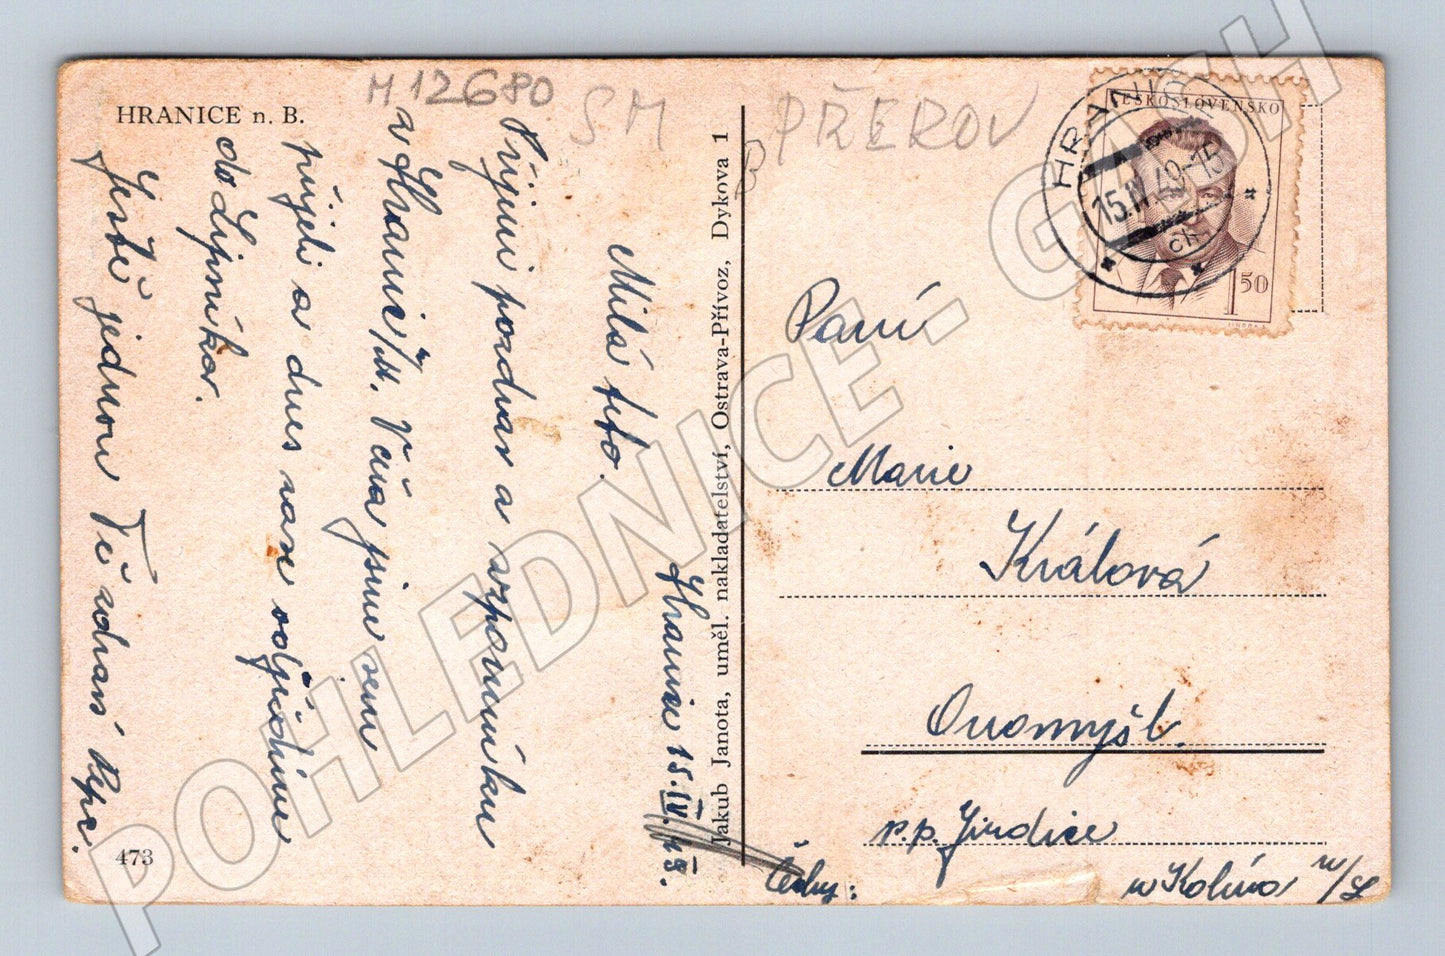 HRANICE n. B.
M 12680
SM
PŘEROV
B
Hranice 15.IV.48.
Milá teto.
Přijmi pozdrav a vzpomínku
z Hranic/M. Včera jsme sem
přijeli a dnes ráno odjíždíme
do Lipníka.
Ještě jednou Tě zdraví Pepa.
473
Jakub Janota, uměl. nakladatelství, Ostrava-Přívoz, Dykova 1
ČESKOSLOVENSKO
1 50
HRANICE
15.IV.49-15
Paní
Marie
Králová
Onomyšl.
p.p. Jindice
Čechy:
u Kolína n/L
POHLEDNICE - GASH